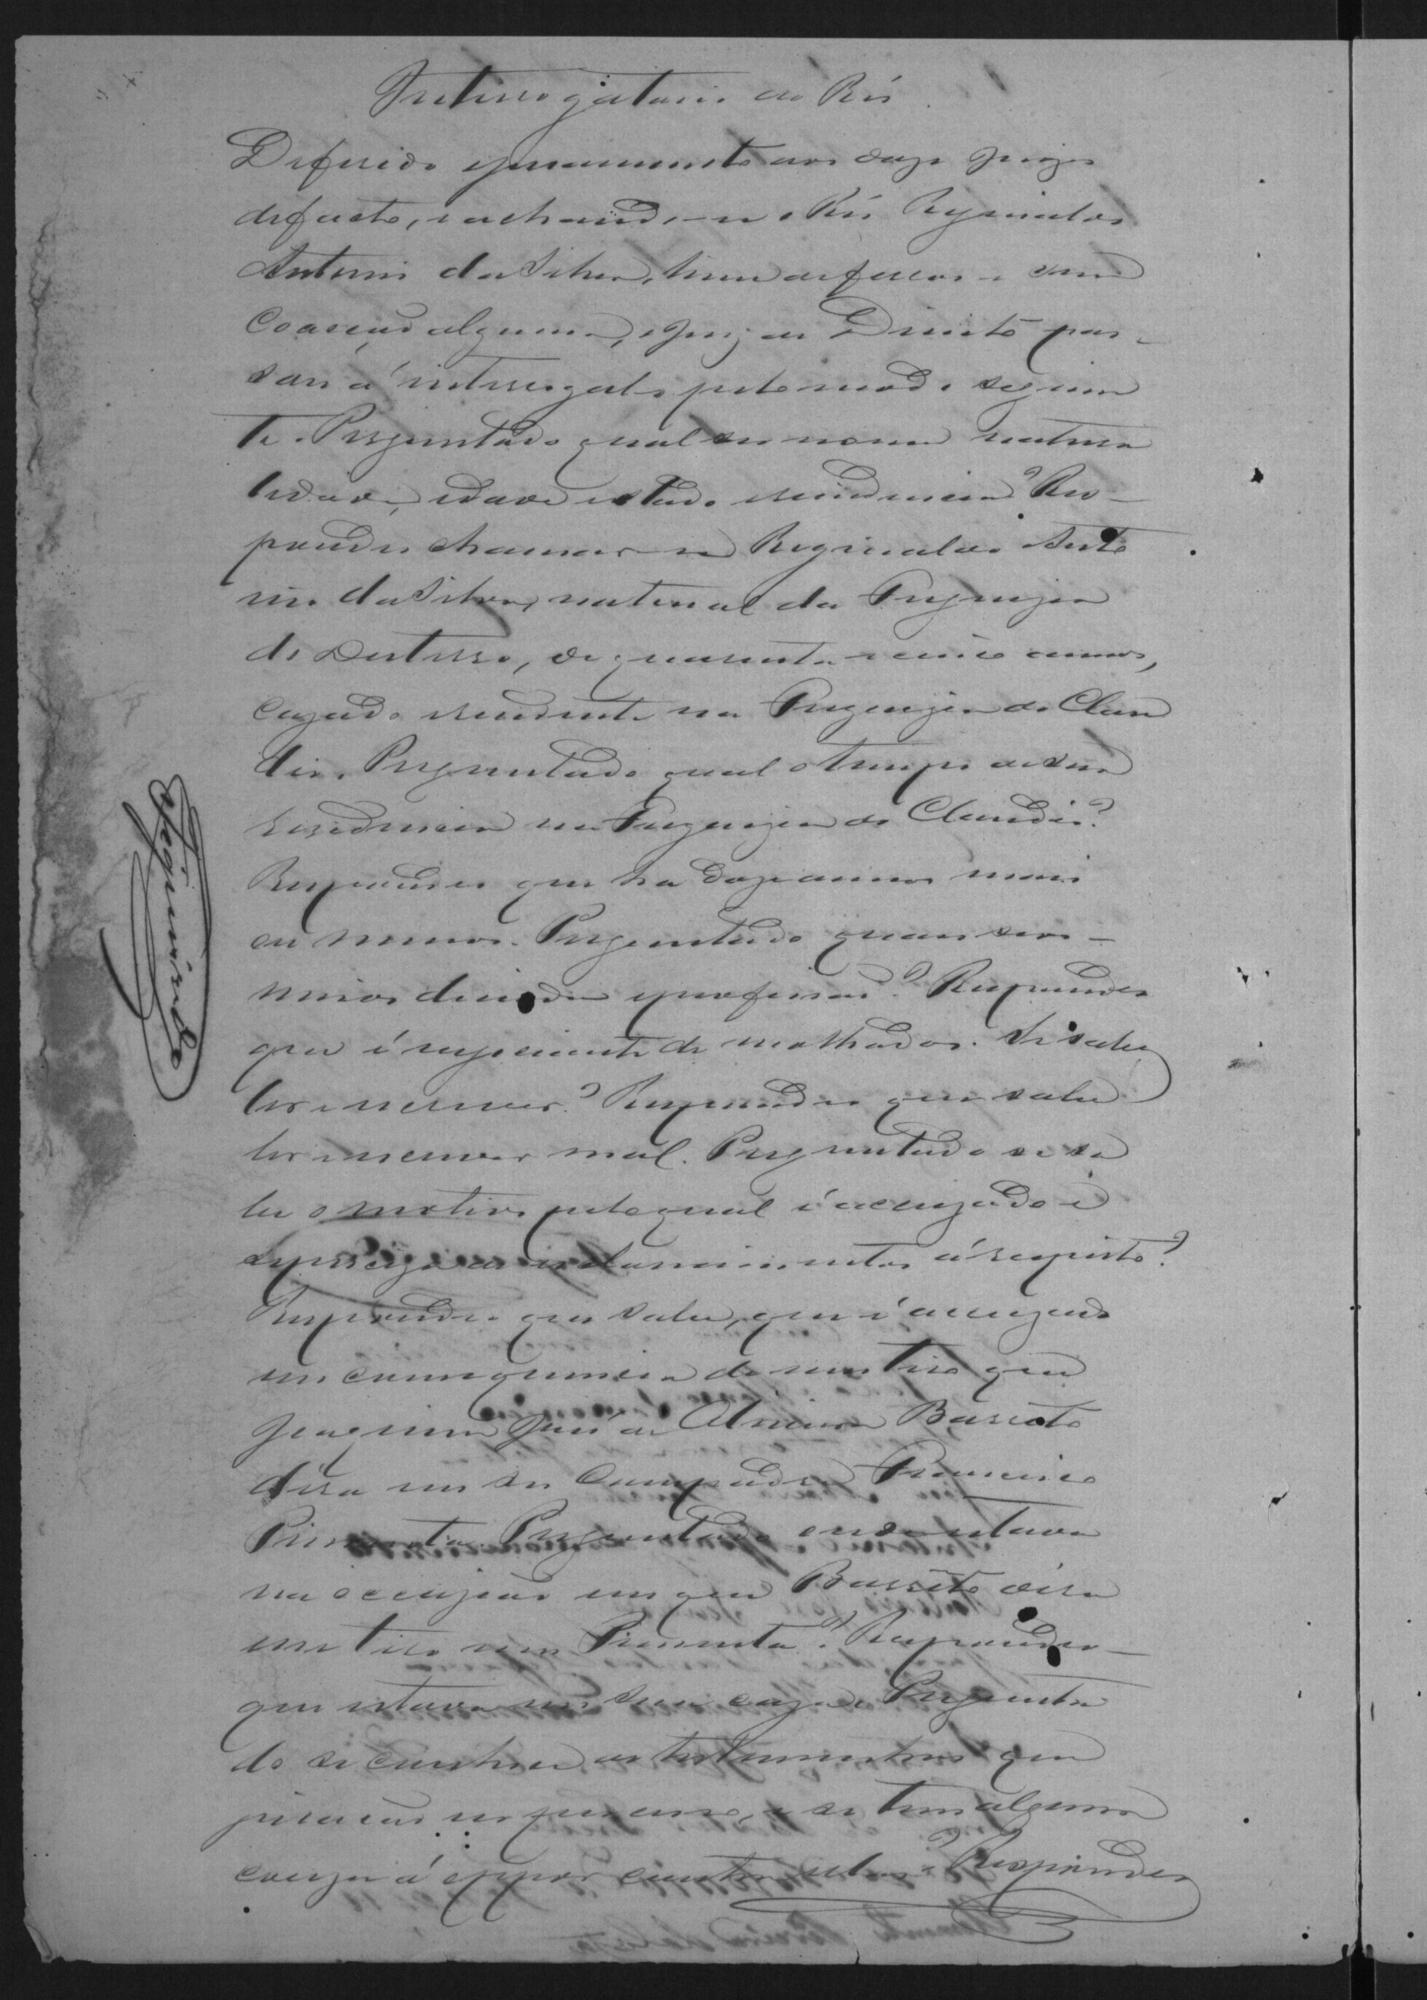 Interrogatorio ao Réo
Deferido juramento aos doze Juizes
de facto, e achando-se o Réo Reginaldo
Antonio da Silva, livre de ferros e sem
Coacção alguma, o Juiz de Direito pas-
sou á interrogal-o pelo modo seguin
te. Perguntado qual seu nome natura
lidade, idade estado e residencia? Res-
pondeo chamar-se Reginaldo Anto
nio da Silva, natural da Freguezia
do Desterro, de quarenta e cinco annos,
cazado residente na Freguezia do Clau
dio. Perguntado qual o tempo de sua
residencia na Freguezia do Claudio?
Respondeo que ha doze annos mais
ou menos. Perguntado quaes seos
meios de vida e profissão? Respondeo
que é negociante de molhados. Se sabe
ler e escrever? Respondeo que sabe
ler e escrever mal. Perguntado se sa
be o motivo pelo qual é accuzado e
se preciza de esclarecimentos á respeito?
Respondeo que sabe, que é accuzado
em consequencia de um tiro que
Joaquim José de Oliveira Barreto
déra em seu Compadre Francisco
Pimenta. Perguntado onde estava
na occazião em que Barreto déra
um tiro em Pimenta? Respondeo
que estava em sua caza. Pergunta
do se conhece as testemunhas que
jurarão no processo, e se tem alguma
couza á oppor contra ellas? Respondeo
Seguindo